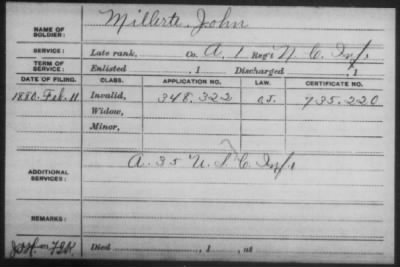 NAME OF SOLDIER: Millerte, John
SERVICE: Late rank, Co. A, 1 Reg't N. C. Inf.
TERM OF SERVICE: Enlisted , 1 Discharged , 1
DATE OF FILING. CLASS. APPLICATION NO. LAW. CERTIFICATE NO.
1880. Feb. 11 Invalid, 348.322 735.220
Widow,
Minor,
ADDITIONAL SERVICES: A. 35 U. S. C. Inf.
REMARKS:
Died , 1 , at